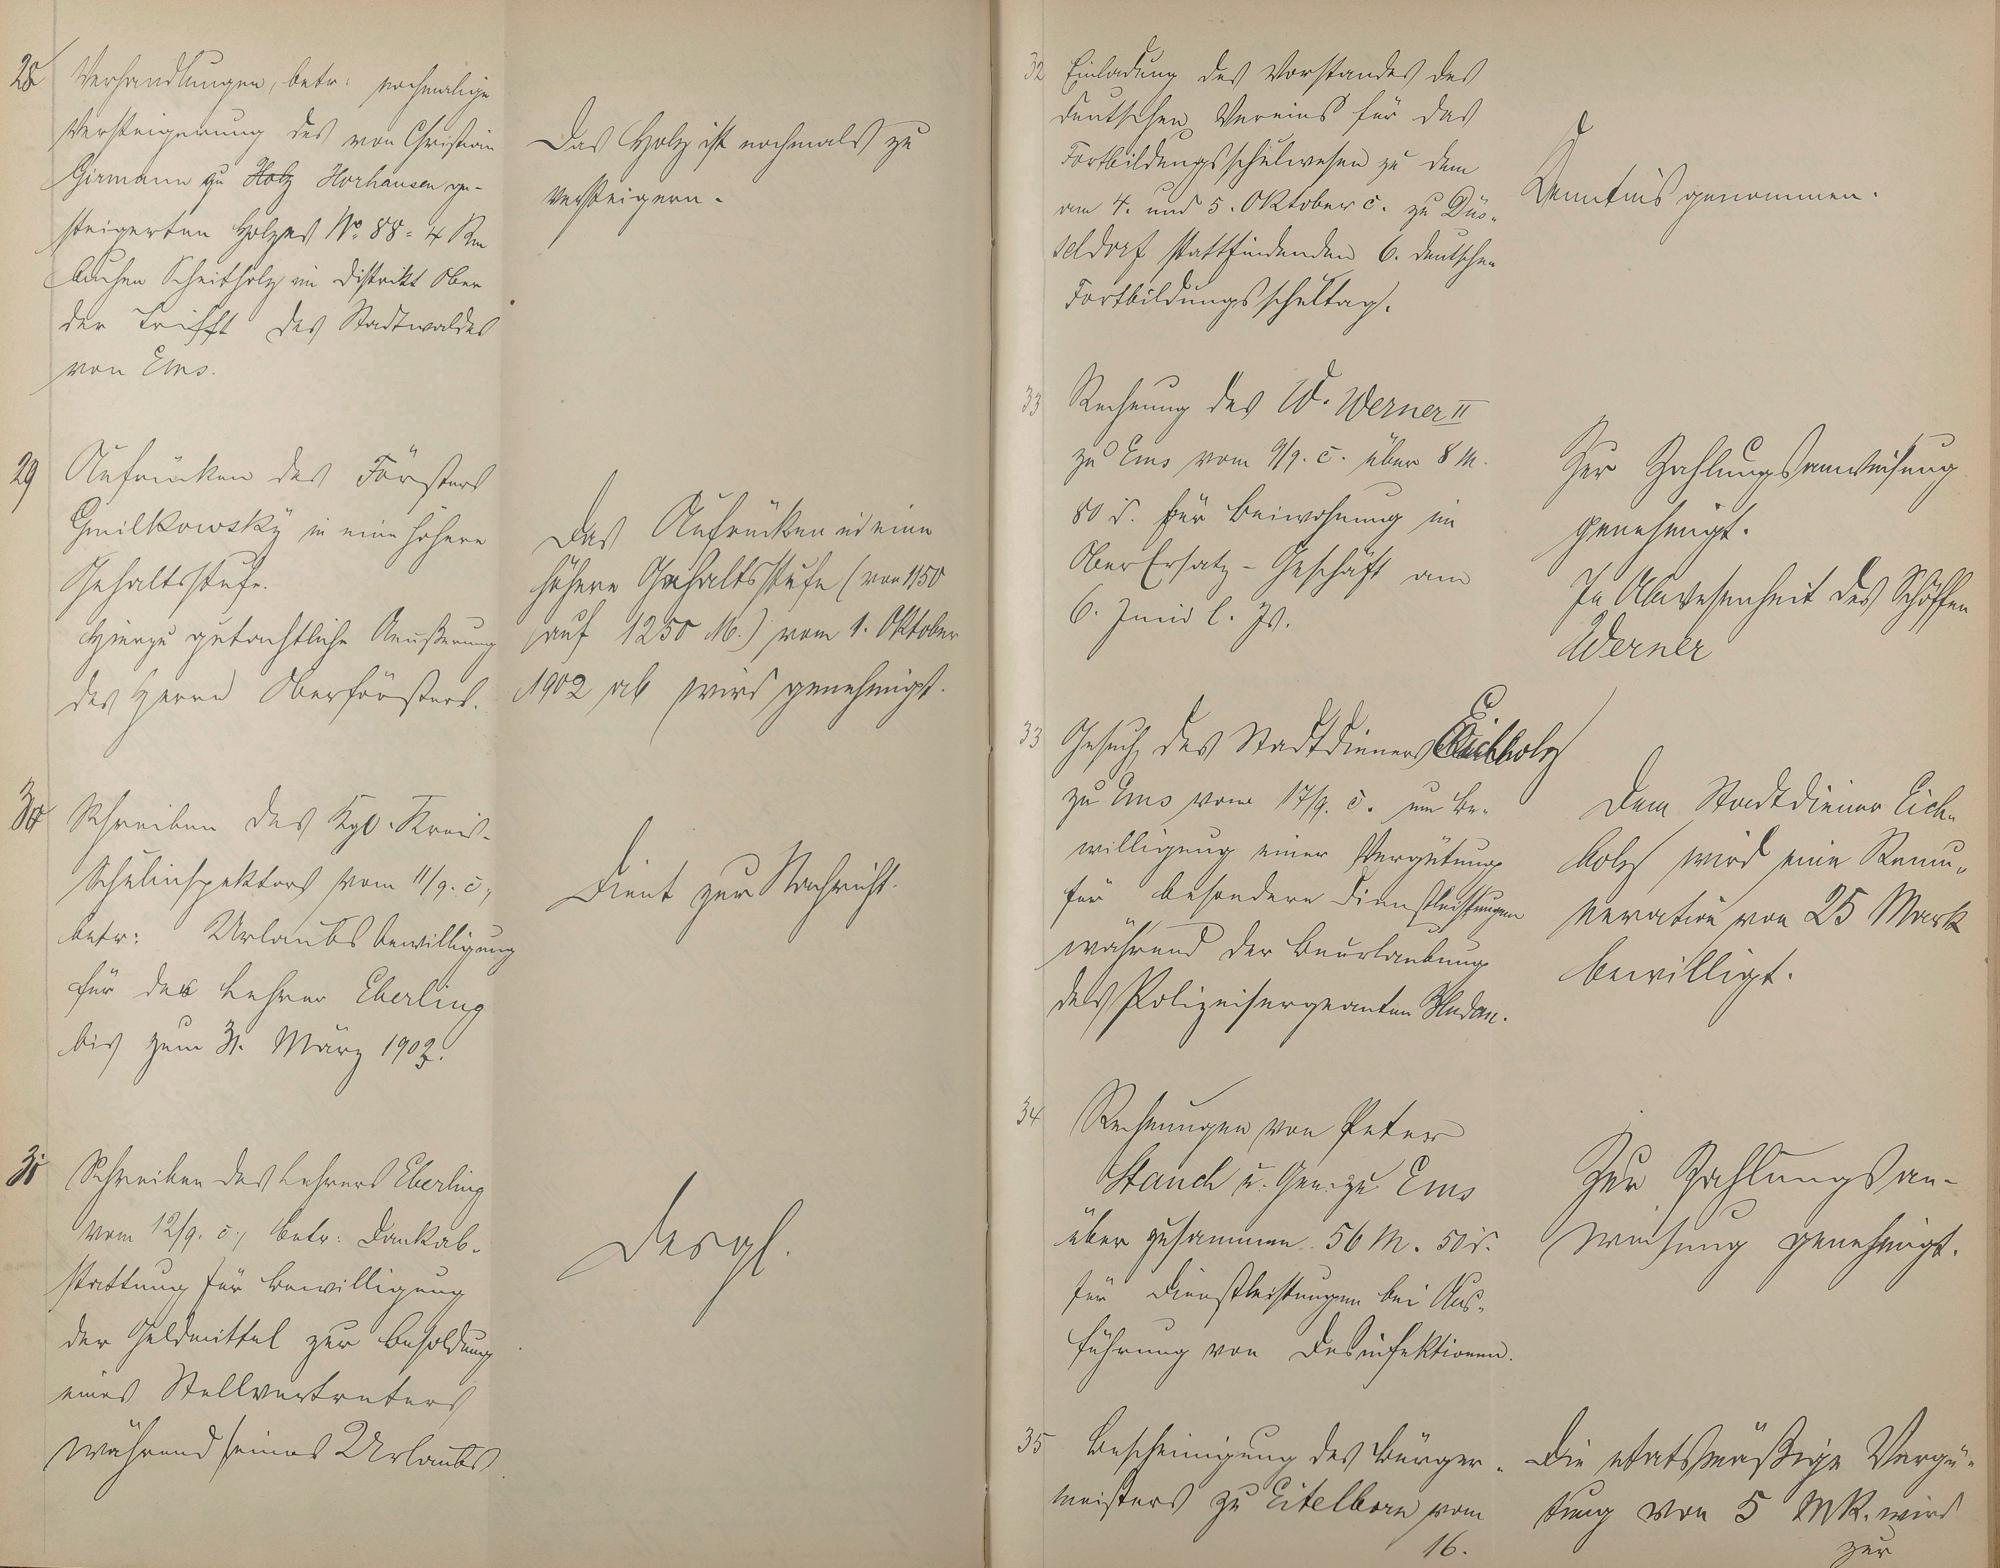 28
Verhandlungen, betr: nochmalige
Versteigerung des von Christian
Girmann zu Holz Horhausen ge-
steigerten Holzes No. 88 = 4 Rm
buchen Scheitholz im Distrikt Ober
der Trifft des Stadtwaldes
von Ems.
Das Holz ist nochmals zu
versteigern.
29
Aufrücken des Försters
Gmilkowsky in eine höhere
Gehaltsstufe.
Hierzu gutachtliche Aeußerung
des Herrn Oberförsters.
Das Aufrücken in eine
höhere Gehaltsstufe (von 1150
auf 1250 M.) vom 1. Oktober
1902 ab wird genehmigt.
30
Schreiben des Kgl. Kreis-
Schulinspektors vom 11/9. c.,
betr: Urlaubsbewilligung
für den Lehrer Eberling
bis zum 31. März 1903.
Dient zur Nachricht.
31
Schreiben des Lehrers Eberling
vom 12/9. c., betr: Dankab-
stattung für Bewilligung
der Geldmittel zur Besoldung
eines Stellvertreters
während seines Urlaubs.
Desgl.
32
Einladung des Vorstandes des
deutschen Vereins für das
Fortbildungsschulwesen zu dem
am 4. und 5. Oktober c. zu Düs-
seldorf stattfindenden 6. deutschen
Fortbildungsschultag.
Kenntnis genommen.
33
Rechnung des W. Werner II
zu Ems vom 9/9. c. über 8 M.
80 d. für Beiwohnung im
Ober Ersatz-Geschäft am
6. Juni l. Js.
Zur Zahlungsanweisung
genehmigt.
In Abwesenheit des Schöffen
Werner
33
Gesuch des Stadtdieners Eichholz
zu Ems vom 17/9. c. um Be-
willigung einer Vergütung
für besondere Dienstleistungen
während der Beurlaubung
des Polizeisergeanten
Dem Stadtdiener Eich-
holz wird eine Remu-
neration von 25 Mark
bewilligt.
34
Rechnungen von Peter
Stauch u. Gen. zu Ems
über zusammen 56 M. 50 d.
für Dienstleistungen bei Aus-
führung von Desinfektionen.
Zur Zahlungsan-
weisung genehmigt.
35
Bescheinigung des Bürger-
meisters zu Eitelborn vom
16.
Die etatsmäßige Vergü-
tung von 5 Mk. wird
zur